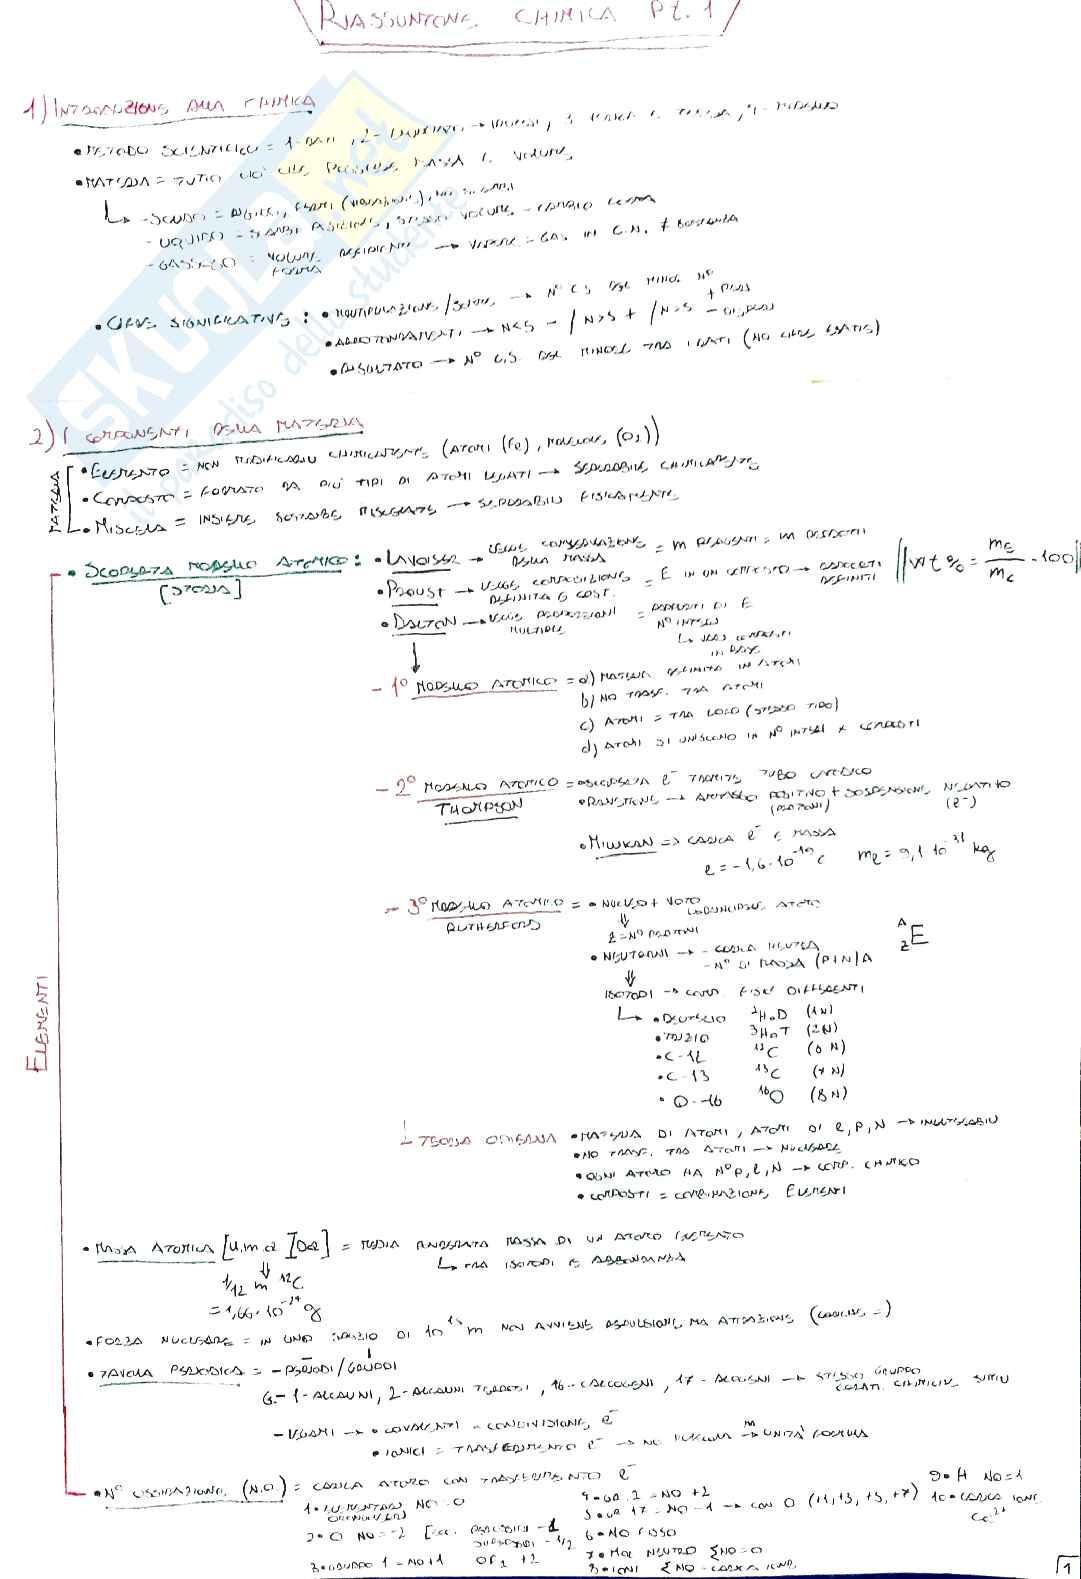 RIASSUNTONE CHIMICA Pt. 1
1) INTRODUZIONE ALLA CHIMICA
• METODO SCIENTIFICO = 1- DATI, 2-
• MATERIA = TUTTO CIÒ CHE POSSIEDE MASSA E VOLUME
↳ - SOLIDO = RIGIDO,
- LIQUIDO = STESSO VOLUME - CAMBIO FORMA
- GASSOSO = VOLUME → VAPORE = GAS IN C.N. ≠ SOSTANZA
FORMA
• CIFRE SIGNIFICATIVE : • MOLTIPLICAZIONE / → N° C.S. DEL MINOR N°
• ARROTONDAMENTI → N<5 - / N>5 + / N=5
+ PARI
- DISPARI
• RISULTATO → N° C.S. DEL MINORE TRA I DATI (NO CIFRE ESATTE)
2) I COMPONENTI DELLA MATERIA
MATERIA
• ELEMENTO = NON MODIFICABILI CHIMICAMENTE (ATOMI (Fe), MOLECOLE (O2))
• COMPOSTO = FORMATO DA PIÙ TIPI DI ATOMI LEGATI → SEPARABILE CHIMICAMENTE
• MISCELA = INSIEME SOSTANZE MISCELATE → SEPARABILI FISICAMENTE
• SCOPERTA MODELLO ATOMICO :
[STORIA]
• LAVOISIER → LEGGE CONSERVAZIONE DELLA MASSA = m REAGENTI = m PRODOTTI
• PROUST → LEGGE COMPOSIZIONE DEFINITA E COST. = E IN UN COMPOSTO → DEFINITI
Wt % = mE / mC · 100
• DALTON → LEGGE PROPORZIONI MULTIPLE = RAPPORTI DI E N° INTERI
- 1° MODELLO ATOMICO = a) MATERIA DEFINITA IN ATOMI
b) NO TRASF. TRA ATOMI
c) ATOMI = TRA LORO (STESSO TIPO)
d) ATOMI SI UNISCONO IN N° INTERI X COMPOSTI
- 2° MODELLO ATOMICO = • SCOPERTA e- TRAMITE TUBO CATODICO
THOMPSON
• PANETTONE → AMMASSO POSITIVO + SOSPENSIONE NEGATIVO
(PROTONI) (e-)
• MILLIKAN => CARICA e- E MASSA
e = -1,6·10^-19 C me = 9,1 10^-31 kg
- 3° MODELLO ATOMICO = • NUCLEO + VUOTO
RUTHERFORD
Z = N° PROTONI
• NEUTRONI → - CARICA NEUTRA
- N° DI MASSA (P+N) A
A Z E
ISOTOPI → COMP. FISICI DIFFERENTI
↳ • DEUTERIO 2H o D (1N)
• TRIZIO 3H o T (2N)
• C-12 12C (6 N)
• C-13 13C (7 N)
• O-16 16O (8N)
↳ TEORIA ODIERNA • MATERIA DI ATOMI, ATOMI DI e, P, N →
• NO TRASF. TRA ATOMI → NUCLEARE
• OGNI ATOMO HA N° P, e, N → COMP. CHIMICO
• COMPOSTI = COMBINAZIONE ELEMENTI
ELEMENTI
• MASSA ATOMICA [u.m.a][Da] = MEDIA PONDERATA MASSA DI UN ATOMO ELEMENTO
↳ TRA ISOTOPI E ABBONDANZA
1/12 m 12C
= 1,66·10^-24 g
• FORZA NUCLEARE = IN UNO SPAZIO DI 10^15 m NON AVVIENE REPULSIONE MA ATTRAZIONE (CARICHE =)
• TAVOLA PERIODICA = - PERIODI / GRUPPI
G. - 1 - ALCALINI, 2 - ALCALINI TERROSI, 16 - CALCOGENI, 17 - ALOGENI → STESSO GRUPPO CARATT. CHIMICHE SIMILI
- LEGAMI → • COVALENTI = CONDIVISIONE e-
• IONICI = TRASFERIMENTO e- → NO MOLECOLA → UNITÀ FORMULA
• N° OSSIDAZIONE (N.O.) = CARICA ATOMO CON TRASFERIMENTO e-
1 • ELEMENTARE NO = 0
2 • O NO = -2 [ecc. PEROSSIDI -1
SUPEROSSIDI -1/2
OF2 +2
3 • GRUPPO 1 = NO +1
4 • GR. 2 = NO +2
5 • GR 17 = NO -1 → CON O (+1, +3, +5, +7)
6 • NO FISSO
7 • MOL NEUTRO ΣNO = 0
8 • IONI ΣNO = CARICA IONE
9 • H NO = 1
10 • CARICA IONE
1
SKUOLA.net
il paradiso dello studente